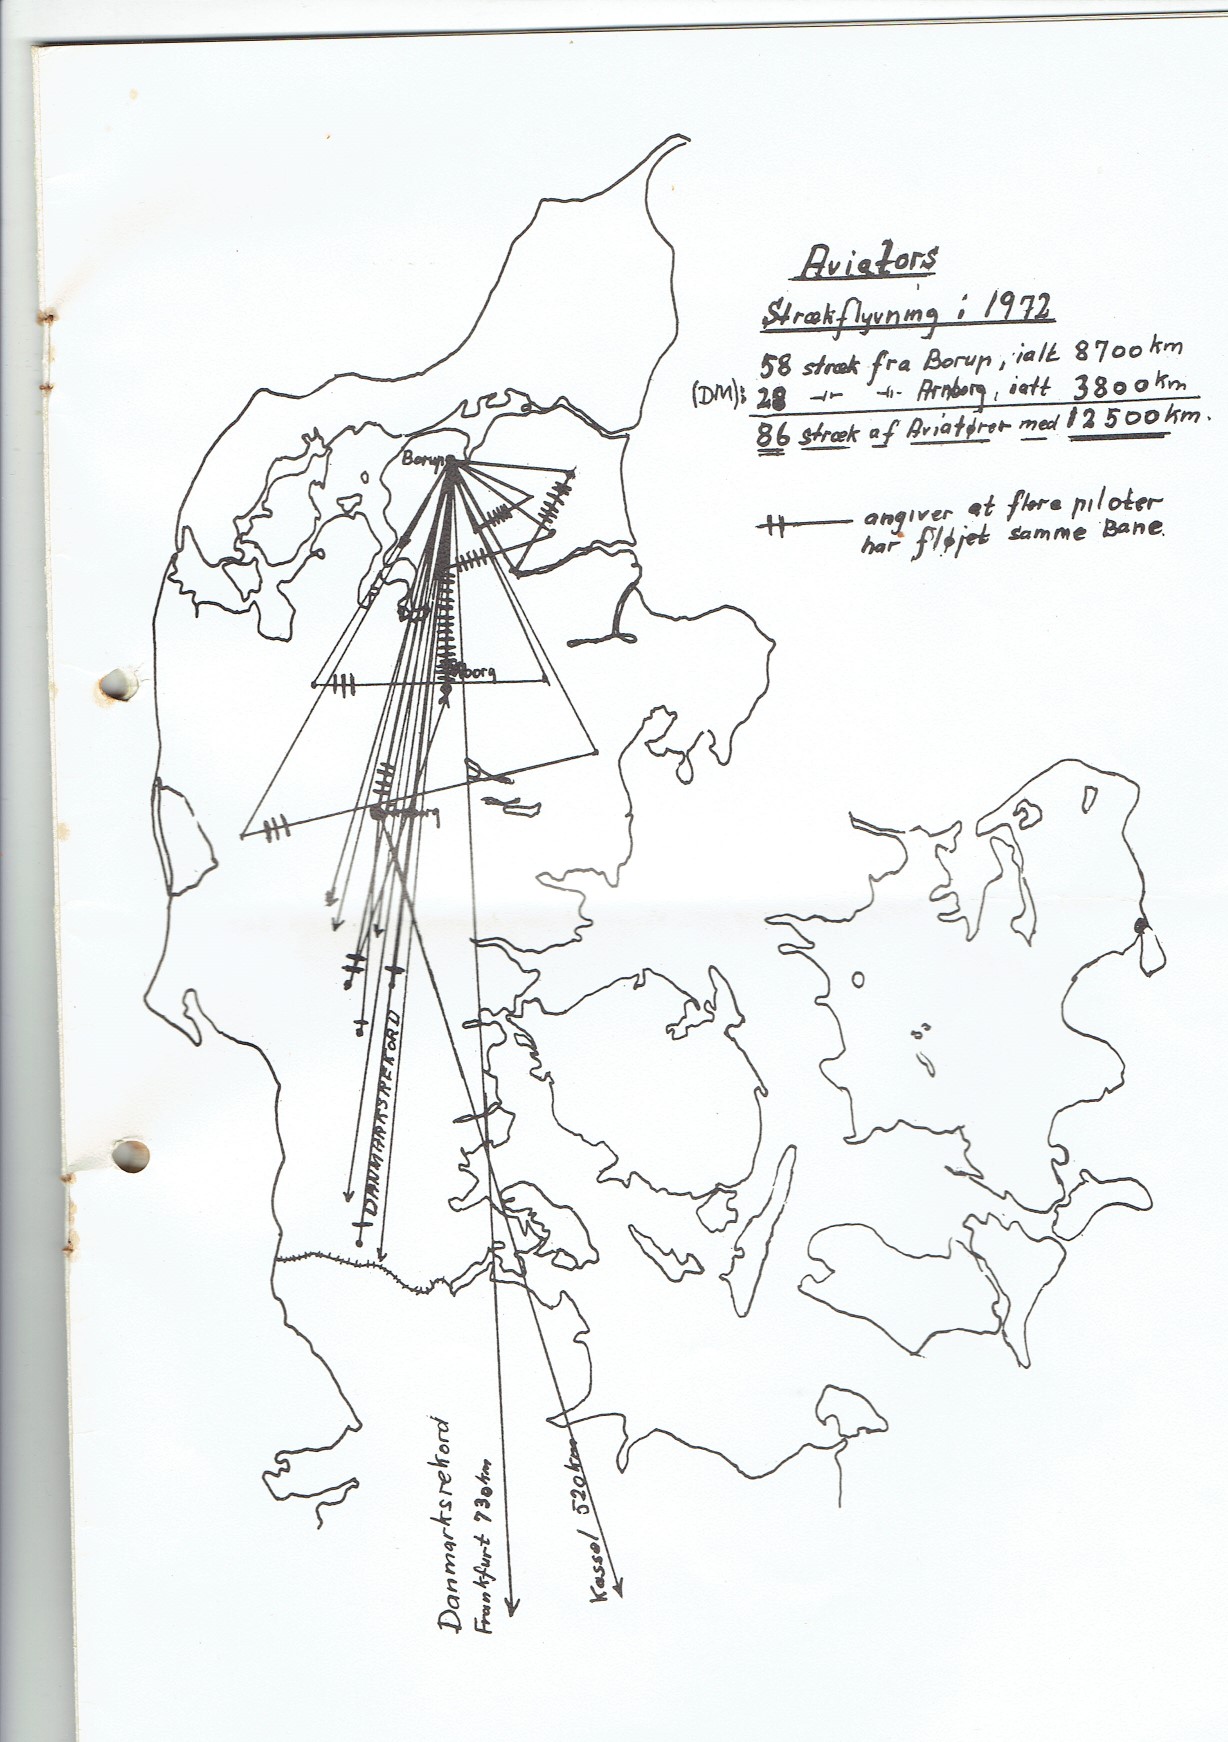 Aviators
Strækflyvning i 1972
58 stræk fra Borup, ialt 8700 km
(DM): 28 -"- -"- Arnborg, ialt 3800 km
86 stræk af Aviatører med 12500 km.
angiver at flere piloter
har fløjet samme Bane.
Borup
DANMARKSREKORD
Danmarksrekord
Frankfurt 730 km
Kassel 520 km